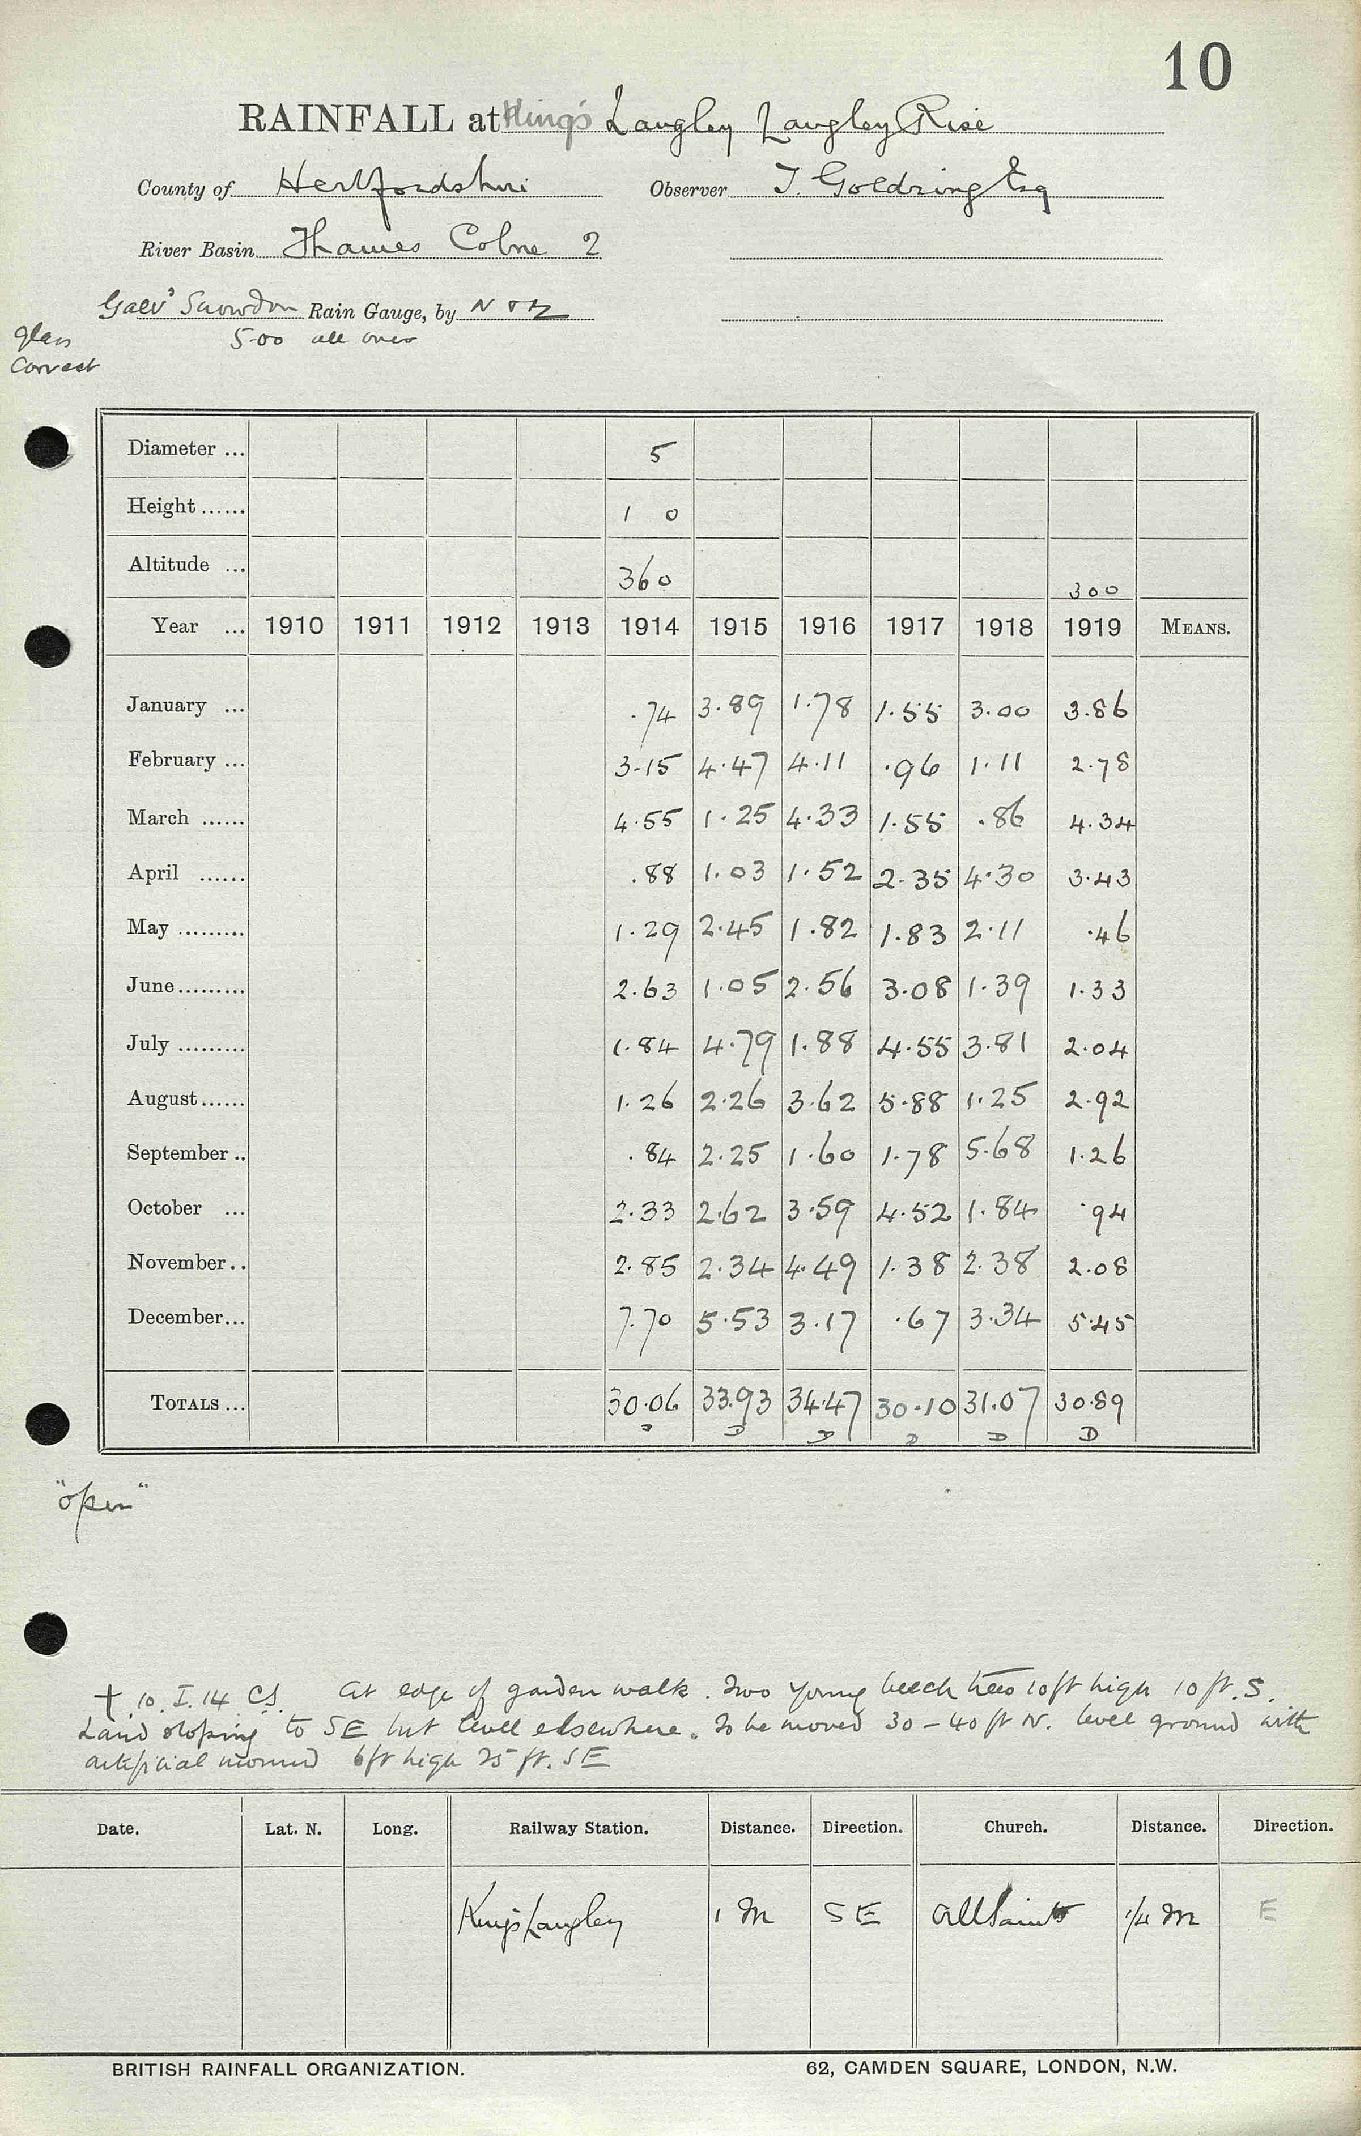 10
RAINFALL at King's Langley Langley Rise
County of Hertfordshire Observer T. Goldring Esq
River Basin Thames Colne 2
Galv'd Snowdon Rain Gauge, by N & Z
glass 5.00 all over
correct
Diameter ... 5
Height ...... 1 0
Altitude ... 360 300
Year ... 1910 1911 1912 1913 1914 1915 1916 1917 1918 1919 MEANS.
January ... .74 3.89 1.78 1.55 3.00 3.86
February ... 3.15 4.47 4.11 .96 1.11 2.78
March ...... 4.55 1.25 4.33 1.55 .86 4.34
April ...... .88 1.03 1.52 2.35 4.30 3.43
May ......... 1.29 2.45 1.82 1.83 2.11 .46
June......... 2.63 1.05 2.56 3.08 1.39 1.33
July ......... 1.84 4.79 1.88 4.55 3.81 2.04
August...... 1.26 2.26 3.62 5.88 1.25 2.92
September .. .84 2.25 1.60 1.78 5.68 1.26
October ... 2.33 2.62 3.59 4.52 1.84 .94
November.. 2.85 2.34 4.49 1.38 2.38 2.08
December... 7.70 5.53 3.17 .67 3.34 5.45
TOTALS ... 30.06 33.93 34.47 30.10 31.07 30.89
D D D D D D
"open"
† 10.I.14 CS. At edge of garden walk. Two young beech trees 10ft high 10 ft. S.
Land sloping to SE but level elsewhere. To be moved 30 – 40 ft N. level ground with
artificial mound 6ft high 25 ft. SE
Date. Lat. N. Long. Railway Station. Distance. Direction. Church. Distance. Direction.
King's Langley 1 M SE All Saints 1/4 M E
BRITISH RAINFALL ORGANIZATION. 62, CAMDEN SQUARE, LONDON, N.W.